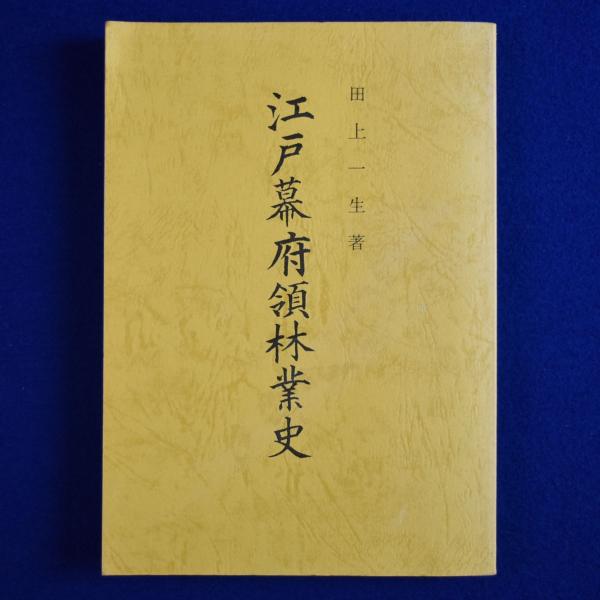 田上一生著
江戸幕府領林業史